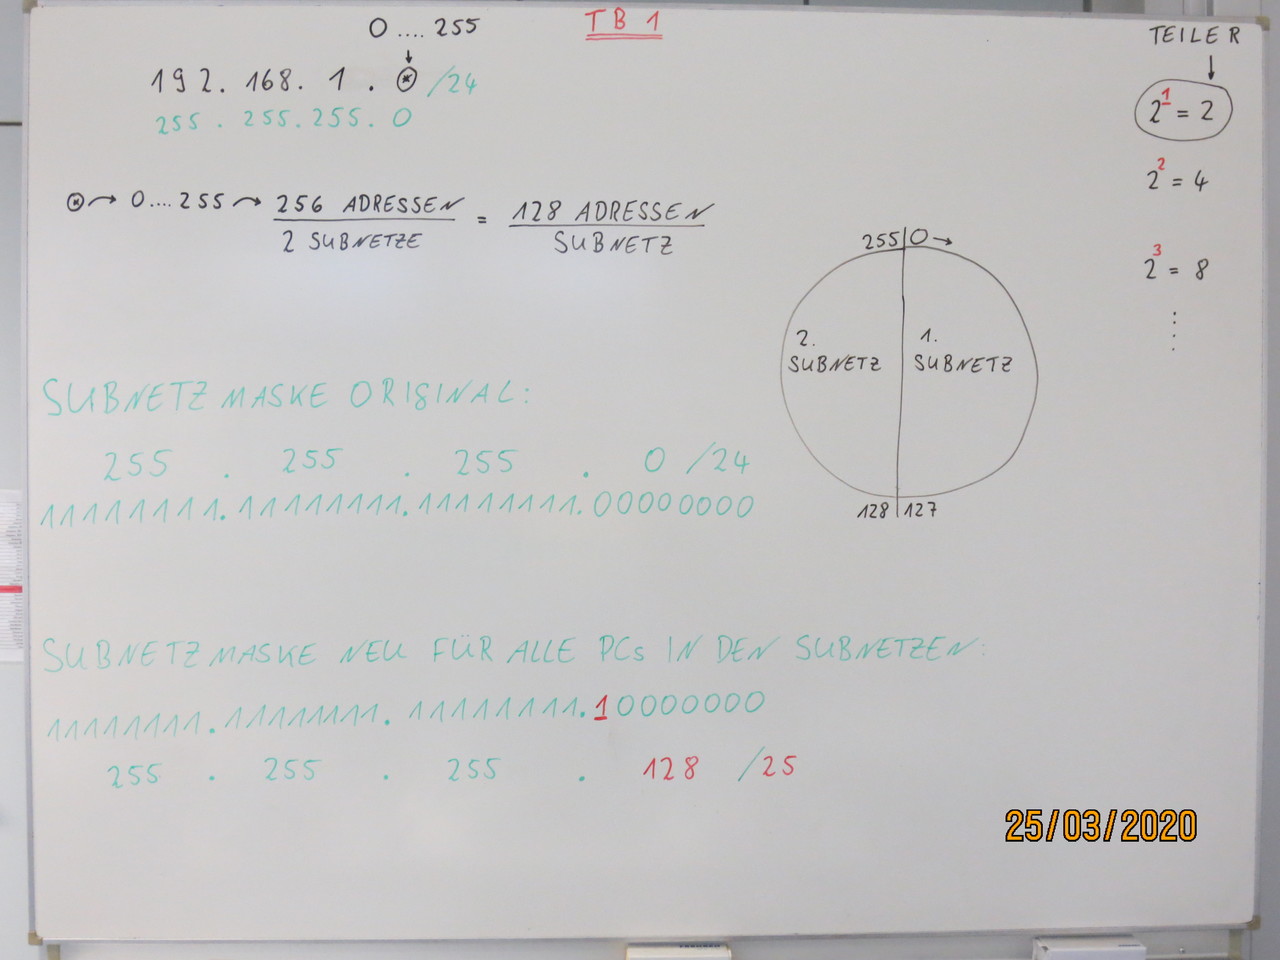 TB 1
0 .... 255
↓
192. 168. 1 . ⊛ /24
255 . 255. 255. 0
⊛ → 0.... 255 → 256 ADRESSEN / 2 SUBNETZE = 128 ADRESSEN / SUBNETZ
TEILER
↓
2^1 = 2
2^2 = 4
2^3 = 8
255 | 0 →
2. SUBNETZ
1. SUBNETZ
128 | 127
SUBNETZMASKE ORIGINAL:
255 . 255 . 255 . 0 /24
11111111. 11111111. 11111111. 00000000
SUBNETZMASKE NEU FÜR ALLE PCs IN DEN SUBNETZEN:
11111111. 11111111. 11111111. 10000000
255 . 255 . 255 . 128 /25
25/03/2020